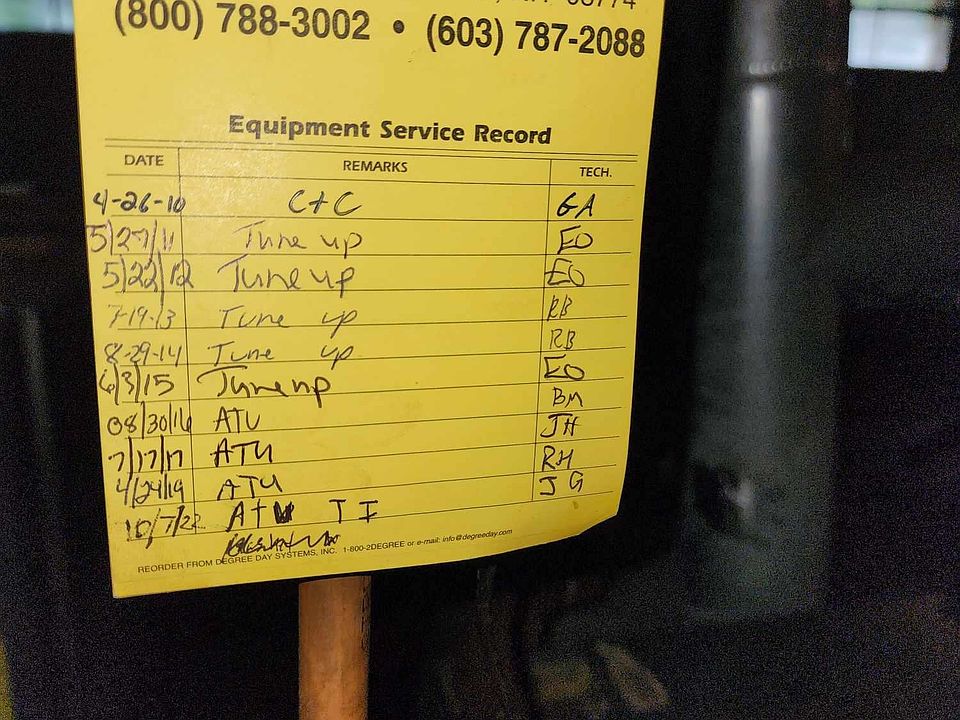 (800) 788-3002 • (603) 787-2088
Equipment Service Record
DATE REMARKS TECH.
4-26-10 C+C GA
5/27/11 Tune up EO
5/22/12 Tune up EO
7-19-13 Tune up RB
8-29-14 Tune up RB
6/3/15 Tune up EO
08/30/16 ATU BM
7/17/17 ATU JH
4/24/19 ATU RH
10/7/22 ATU TI JG
REORDER FROM DEGREE DAY SYSTEMS, INC. 1-800-2DEGREE or e-mail: info@degreeday.com